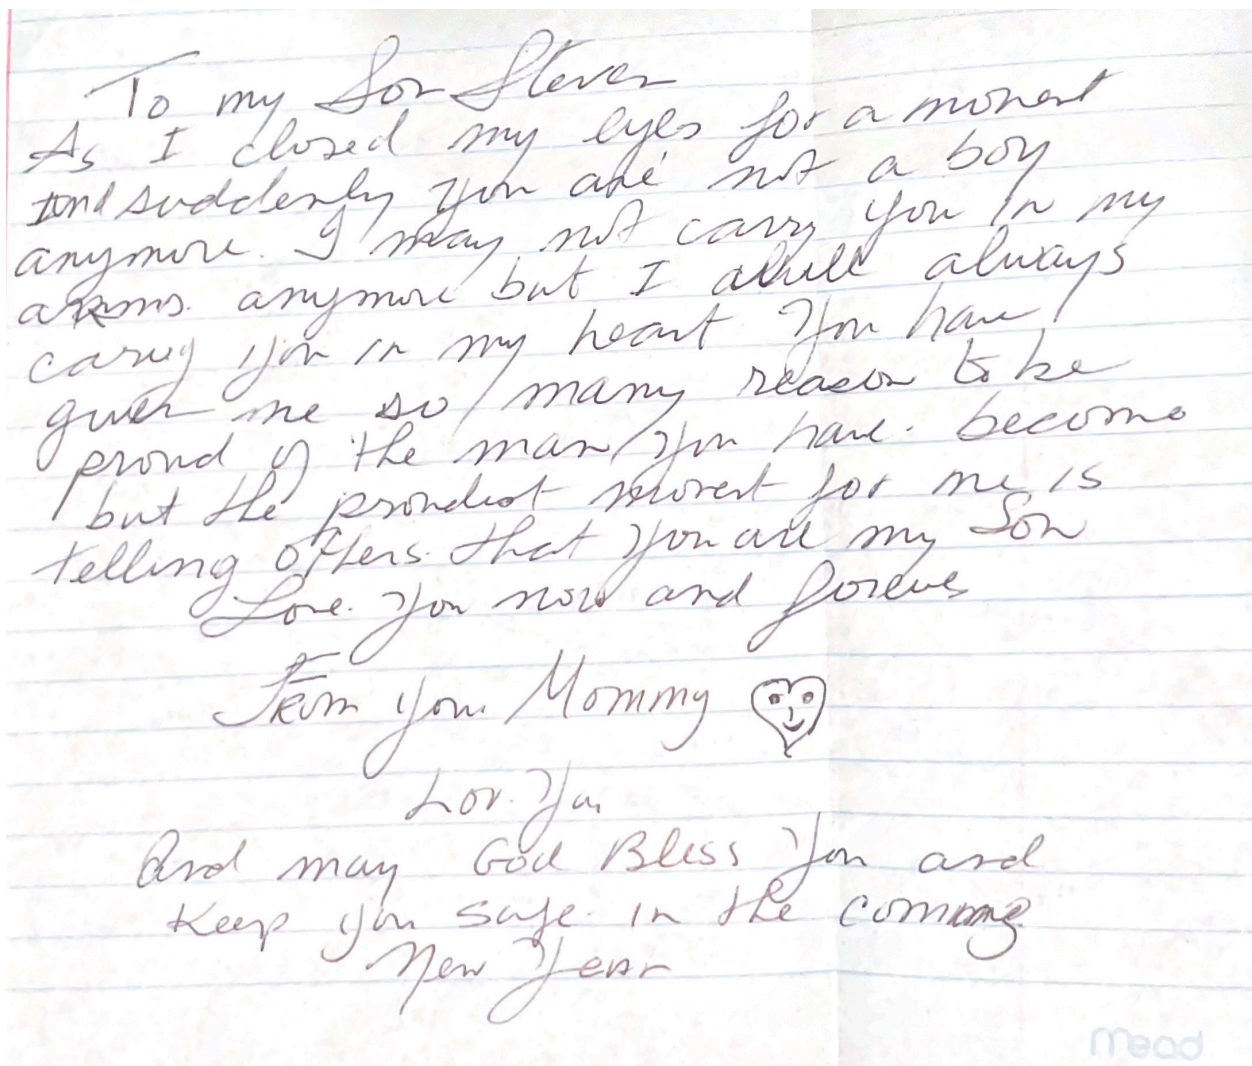 To my Son Steven
As I closed my eyes for a moment
and suddenly you are not a boy
anymore. I may not carry you in my
arms. anymore but I will always
carry you in my heart You have
given me so many reason to be
proud of the man you have. become
but the proudest moment for me is
telling others that you are my Son
Love. You now and forever
From your Mommy
Lov. You
And may God Bless You and
Keep you safe. in the coming
New Year
Mead